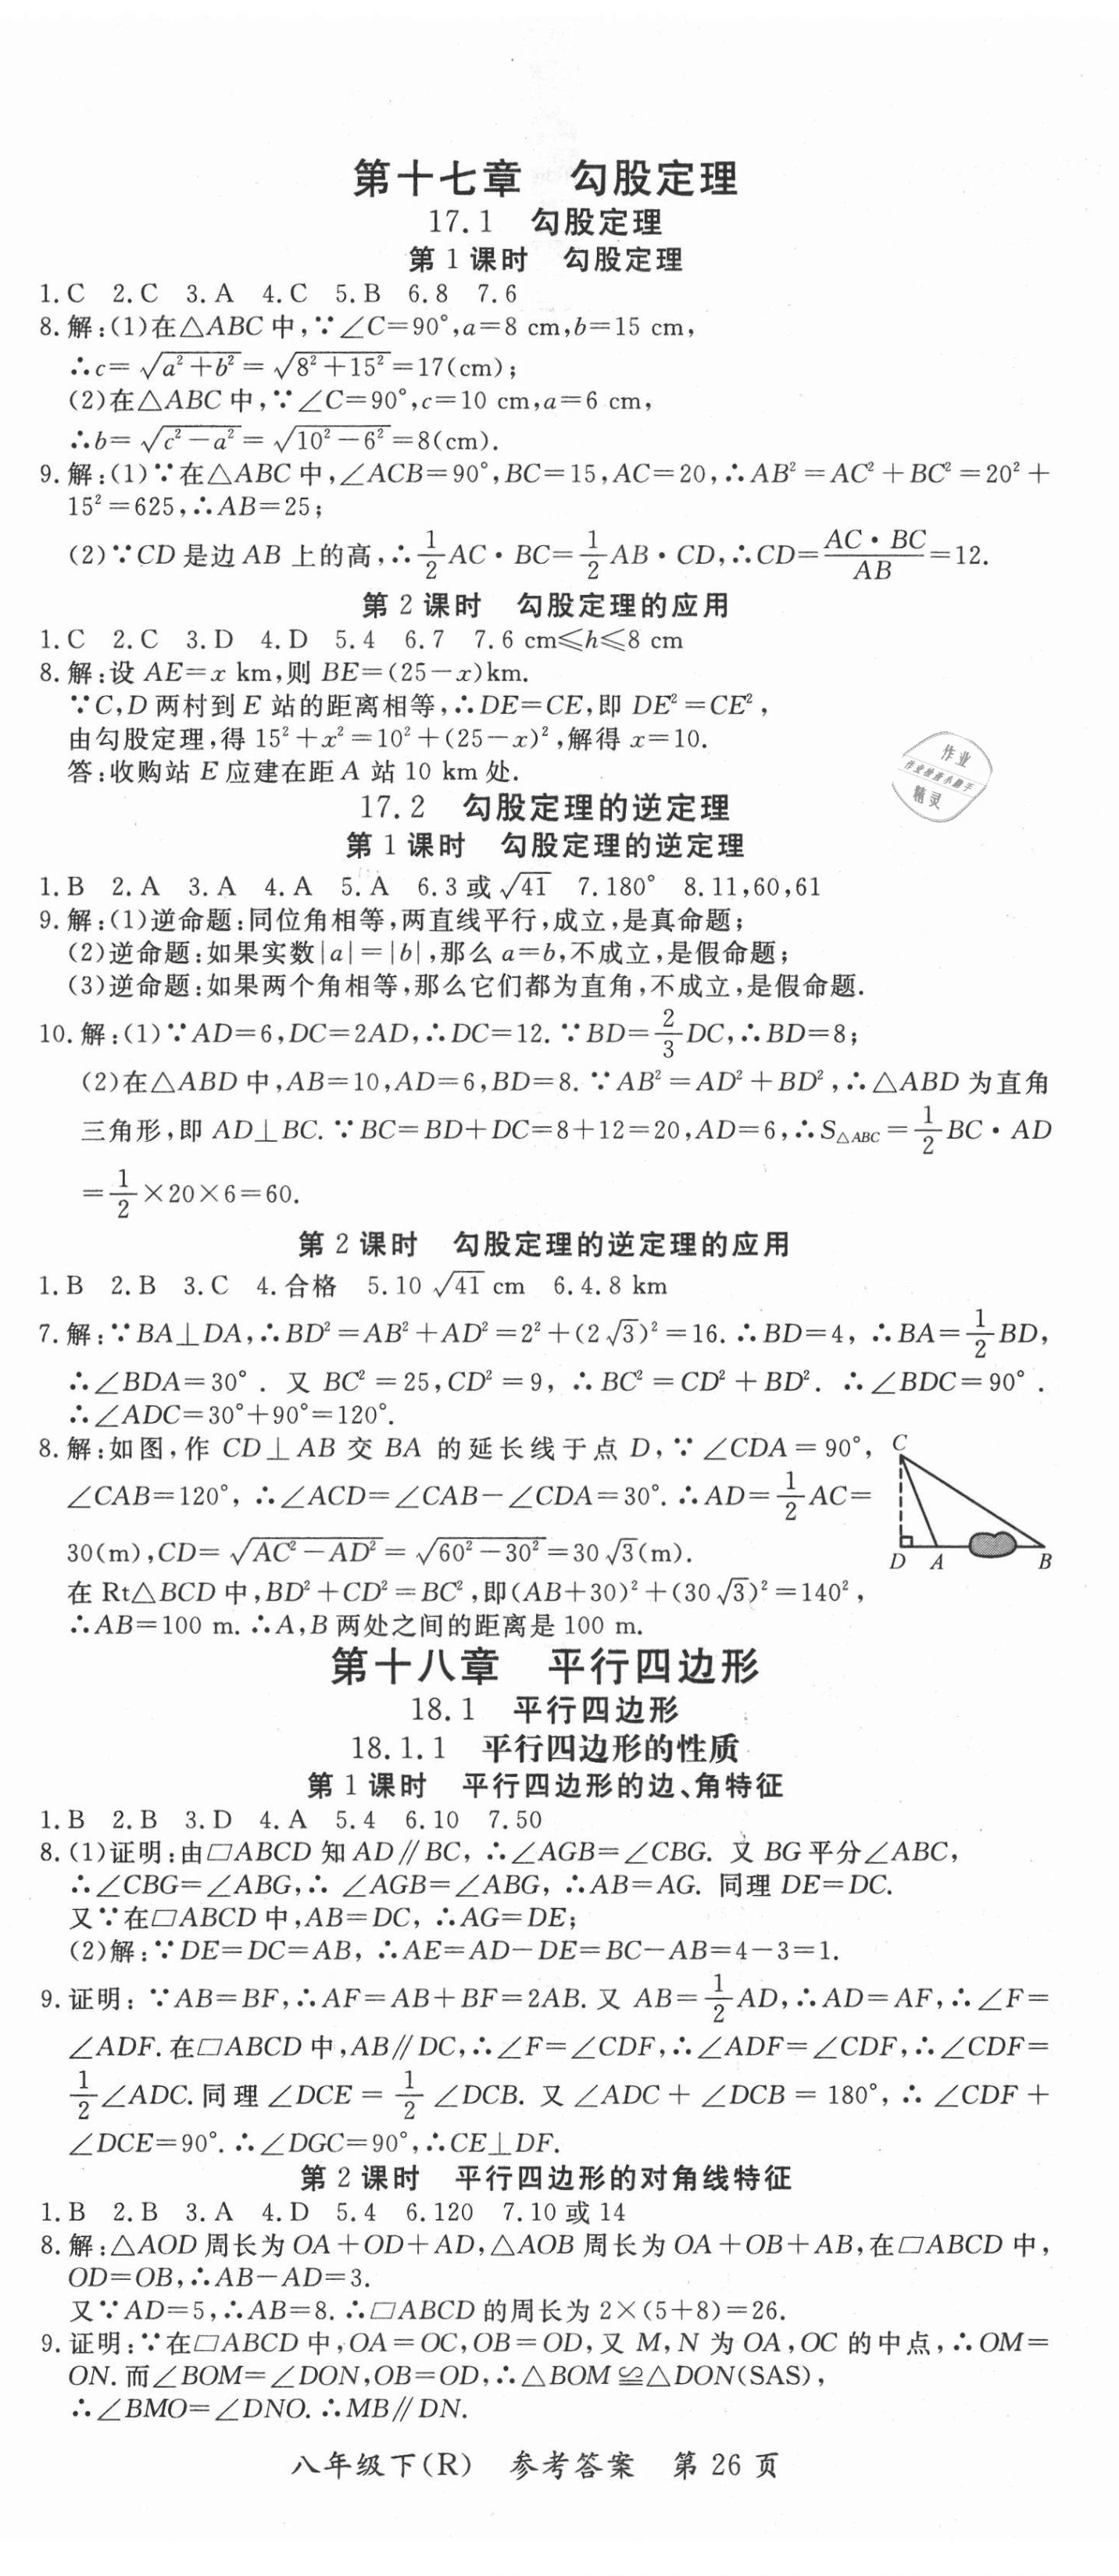 第十七章　勾股定理
17.1　勾股定理
第1课时　勾股定理
1.C　2.C　3.A　4.C　5.B　6.8　7.6
8.解:(1)在△ABC中,∵∠C=90°,a=8 cm,b=15 cm,
∴c=√(a²+b²)=√(8²+15²)=17(cm);
(2)在△ABC中,∵∠C=90°,c=10 cm,a=6 cm,
∴b=√(c²-a²)=√(10²-6²)=8(cm).
9.解:(1)∵在△ABC中,∠ACB=90°,BC=15,AC=20,∴AB²=AC²+BC²=20²+
15²=625,∴AB=25;
(2)∵CD是边AB上的高,∴1/2 AC·BC=1/2 AB·CD,∴CD=AC·BC/AB=12.
第2课时　勾股定理的应用
1.C　2.C　3.D　4.D　5.4　6.7　7.6 cm≤h≤8 cm
8.解:设AE=x km,则BE=(25-x)km.
∵C,D两村到E站的距离相等,∴DE=CE,即DE²=CE²,
由勾股定理,得15²+x²=10²+(25-x)²,解得x=10.
答:收购站E应建在距A站10 km处.
作业
作业检查小助手
精灵
17.2　勾股定理的逆定理
第1课时　勾股定理的逆定理
1.B　2.A　3.A　4.A　5.A　6.3或√41　7.180°　8.11,60,61
9.解:(1)逆命题:同位角相等,两直线平行,成立,是真命题;
(2)逆命题:如果实数|a|=|b|,那么a=b,不成立,是假命题;
(3)逆命题:如果两个角相等,那么它们都为直角,不成立,是假命题.
10.解:(1)∵AD=6,DC=2AD,∴DC=12.∵BD=2/3 DC,∴BD=8;
(2)在△ABD中,AB=10,AD=6,BD=8.∵AB²=AD²+BD²,∴△ABD为直角
三角形,即AD⊥BC.∵BC=BD+DC=8+12=20,AD=6,∴S△ABC=1/2 BC·AD
=1/2×20×6=60.
第2课时　勾股定理的逆定理的应用
1.B　2.B　3.C　4.合格　5.10√41 cm　6.4.8 km
7.解:∵BA⊥DA,∴BD²=AB²+AD²=2²+(2√3)²=16.∴BD=4,∴BA=1/2 BD,
∴∠BDA=30°.又BC²=25,CD²=9,∴BC²=CD²+BD².∴∠BDC=90°.
∴∠ADC=30°+90°=120°.
8.解:如图,作CD⊥AB交BA的延长线于点D,∵∠CDA=90°,
∠CAB=120°,∴∠ACD=∠CAB-∠CDA=30°.∴AD=1/2 AC=
30(m),CD=√(AC²-AD²)=√(60²-30²)=30√3(m).
在Rt△BCD中,BD²+CD²=BC²,即(AB+30)²+(30√3)²=140²,
∴AB=100 m.∴A,B两处之间的距离是100 m.
C
D A B
第十八章　平行四边形
18.1　平行四边形
18.1.1　平行四边形的性质
第1课时　平行四边形的边、角特征
1.B　2.B　3.D　4.A　5.4　6.10　7.50
8.(1)证明:由▱ABCD知AD∥BC,∴∠AGB=∠CBG.又BG平分∠ABC,
∴∠CBG=∠ABG,∴∠AGB=∠ABG,∴AB=AG.同理DE=DC.
又∵在▱ABCD中,AB=DC,∴AG=DE;
(2)解:∵DE=DC=AB,∴AE=AD-DE=BC-AB=4-3=1.
9.证明:∵AB=BF,∴AF=AB+BF=2AB.又AB=1/2 AD,∴AD=AF,∴∠F=
∠ADF.在▱ABCD中,AB∥DC,∴∠F=∠CDF,∴∠ADF=∠CDF,∴∠CDF=
1/2∠ADC.同理∠DCE=1/2∠DCB.又∠ADC+∠DCB=180°,∴∠CDF+
∠DCE=90°.∴∠DGC=90°,∴CE⊥DF.
第2课时　平行四边形的对角线特征
1.B　2.B　3.A　4.D　5.4　6.120　7.10或14
8.解:△AOD周长为OA+OD+AD,△AOB周长为OA+OB+AB,在▱ABCD中,
OD=OB,∴AB-AD=3.
又∵AD=5,∴AB=8.∴▱ABCD的周长为2×(5+8)=26.
9.证明:∵在▱ABCD中,OA=OC,OB=OD,又M,N为OA,OC的中点,∴OM=
ON.而∠BOM=∠DON,OB=OD,∴△BOM≌△DON(SAS),
∴∠BMO=∠DNO.∴MB∥DN.
八年级下(R)　参考答案　第26页